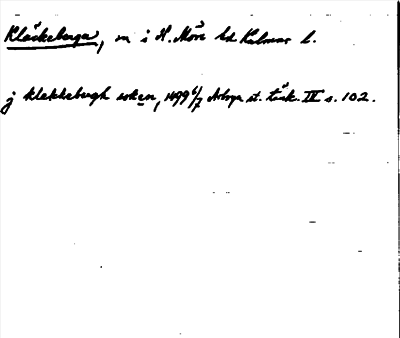 Kläckeberga, sn i N. Möre hd Kalmar l.
j klekkebergh soken, 1499 6/7 Arboga st. tänk. III s. 102.